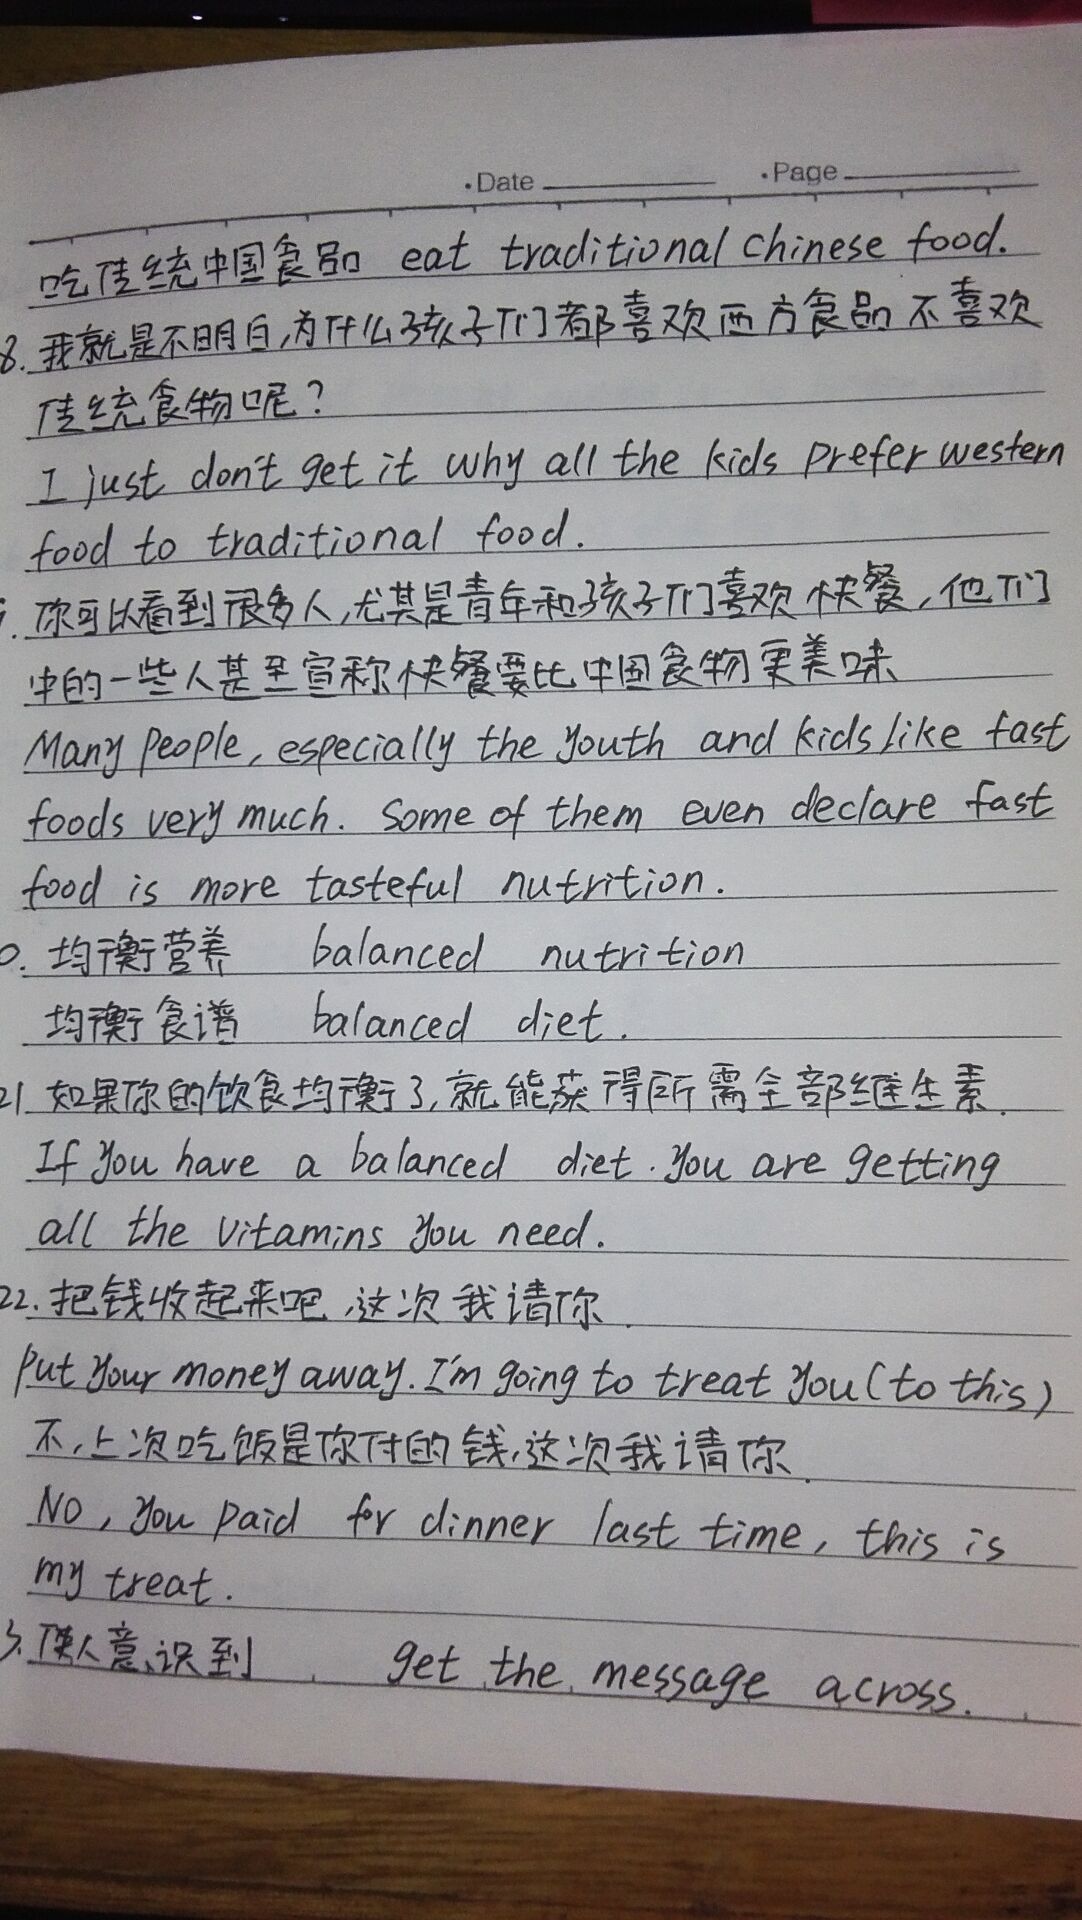 ·Date ·Page
吃传统中国食品 eat traditional Chinese food.
8. 我就是不明白,为什么孩子们都喜欢西方食品不喜欢
传统食物呢?
I just don't get it why all the kids prefer western
food to traditional food.
你可以看到很多人,尤其是青年和孩子们喜欢快餐,他们
中的一些人甚至宣称快餐要比中国食物更美味
Many people, especially the youth and kids like fast
foods very much. Some of them even declare fast
food is more tasteful nutrition.
0. 均衡营养 balanced nutrition
均衡食谱 balanced diet.
21. 如果你的饮食均衡了,就能获得所需全部维生素.
If you have a balanced diet. you are getting
all the vitamins you need.
22. 把钱收起来吧,这次我请你.
Put your money away. I'm going to treat you (to this)
不,上次吃饭是你付的钱,这次我请你.
No, you paid for dinner last time, this is
my treat.
3. 使人意识到 get the message across.